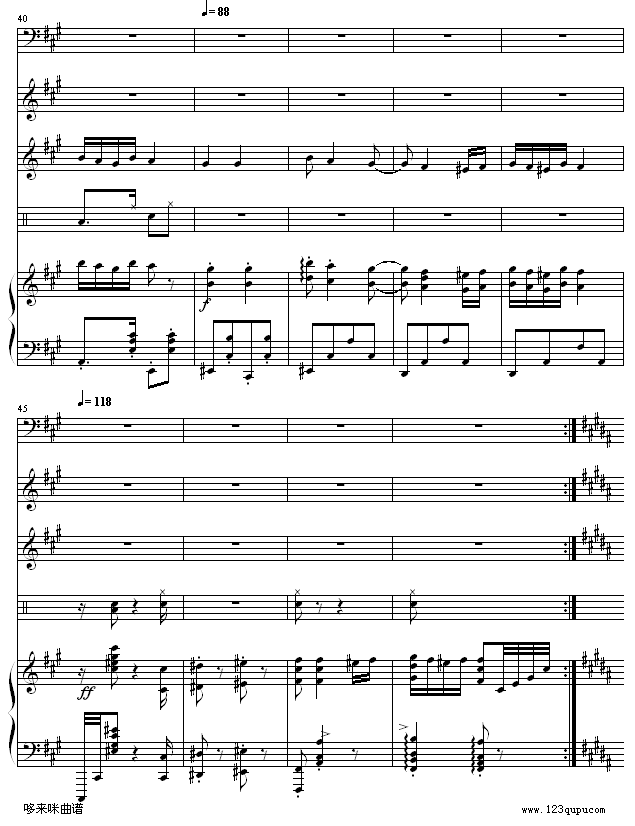 40
♩= 88
f
45
♩= 118
ff
哆来咪曲谱
www.123qupu.com